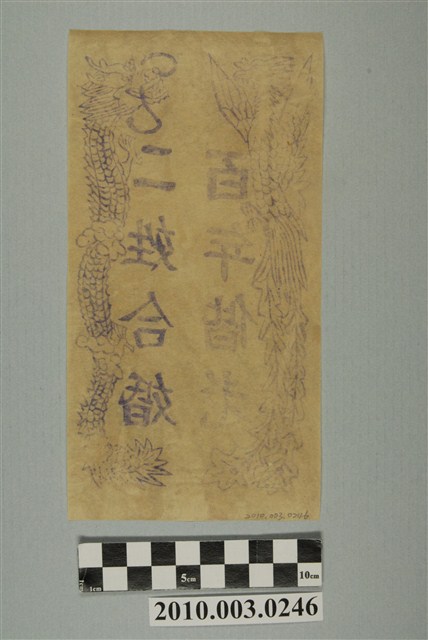 二姓合婚
百年偕
2010.003.0246
1cm 5cm 10cm
2010.003.0246